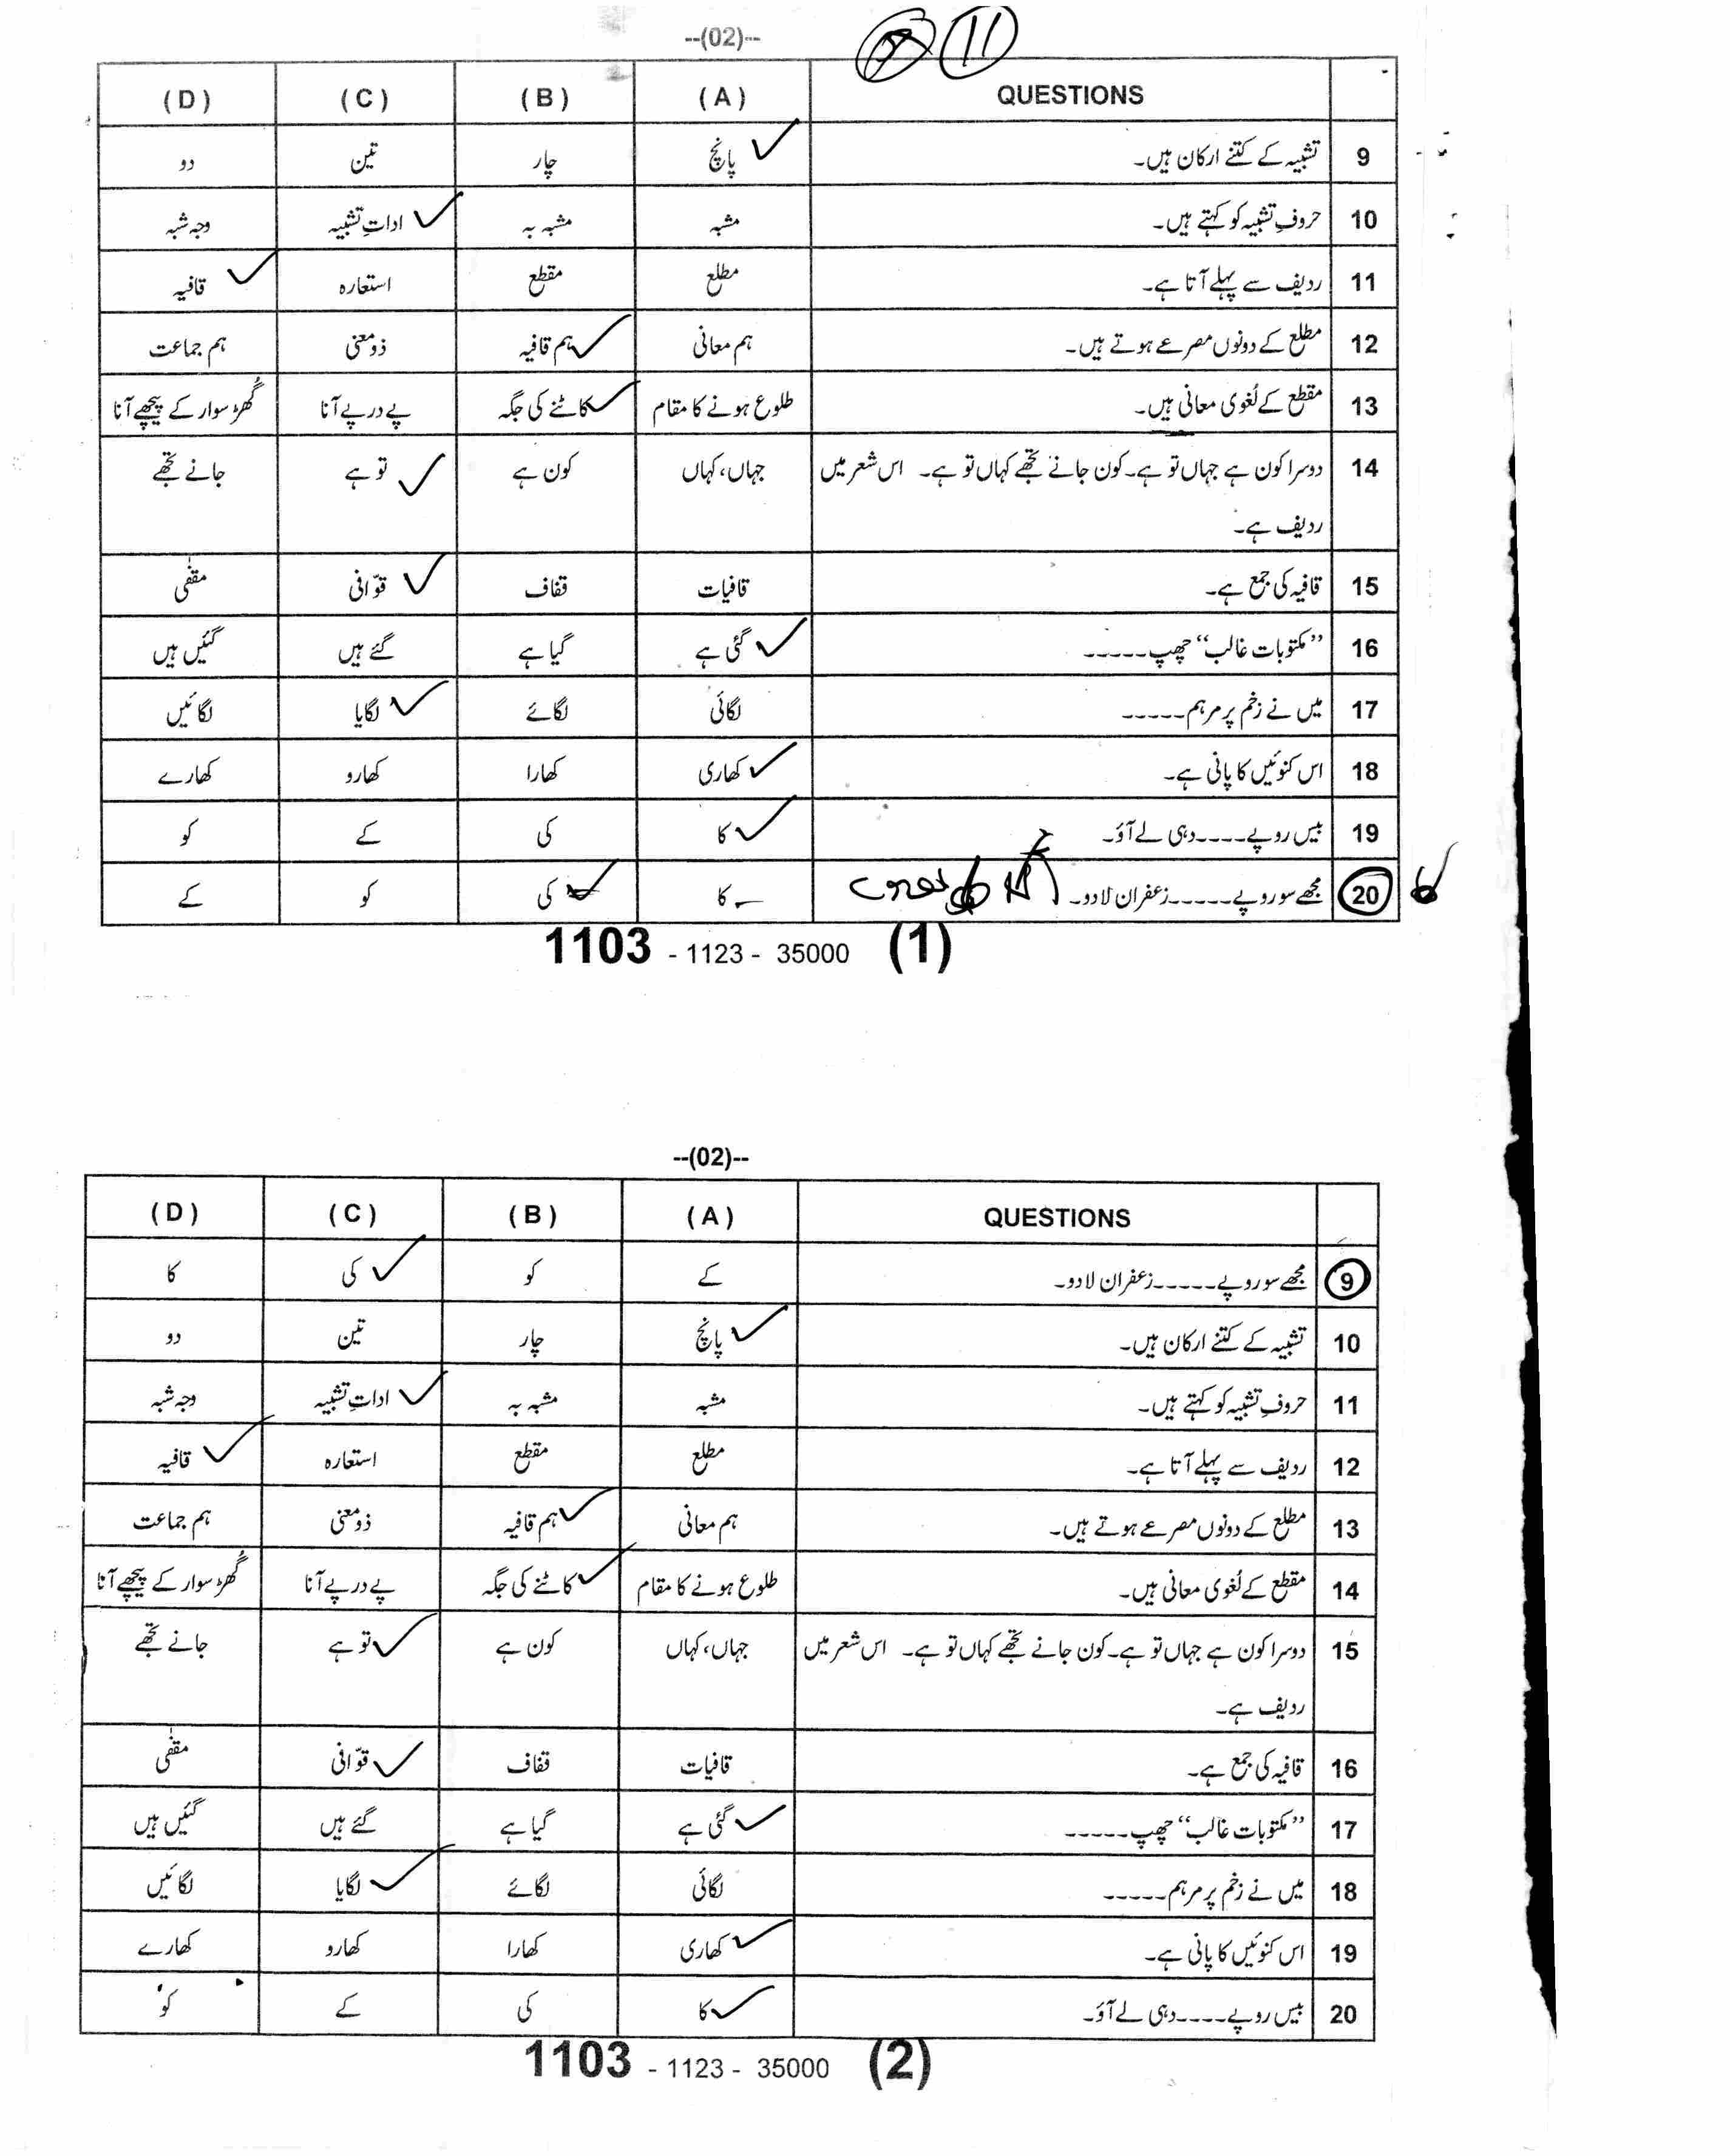 --(02)--
11
QUESTIONS (A) (B) (C) (D)
9 تشبیہ کے کتنے ارکان ہیں۔ پانچ چار تین دو
10 حروفِ تشبیہ کو کہتے ہیں۔ مشبہ مشبہ بہ اداتِ تشبیہ وجہ شبہ
11 ردیف سے پہلے آتا ہے۔ مطلع مقطع استعارہ قافیہ
12 مطلع کے دونوں مصرعے ہوتے ہیں۔ ہم معانی ہم قافیہ ذومعنی ہم جماعت
13 مقطع کے لُغوی معانی ہیں۔ طلوع ہونے کا مقام کاٹنے کی جگہ پے درپے آنا گُھڑ سوار کے پیچھے آنا
14 دوسرا کون ہے جہاں تو ہے۔ کون جانے تجھے کہاں تو ہے۔ اس شعر میں جہاں، کہاں کون ہے تو ہے جانے تجھے
ردیف ہے۔
15 قافیہ کی جمع ہے۔ قافیات قفاف قوّافی مقفٰی
16 ”مکتوبات غالب“ چھپ----- گئی ہے گیا ہے گئے ہیں گئیں ہیں
17 میں نے زخم پر مرہم----- لگائی لگائے لگایا لگائیں
18 اس کنوئیں کا پانی ہے۔ کھاری کھارا کھارو کھارے
19 بیس روپے----دہی لے آؤ۔ کا کی کے کو
20 مجھے سو روپے-----زعفران لا دو۔ کا کی کو کے
1103 - 1123 - 35000 (1)
--(02)--
QUESTIONS (A) (B) (C) (D)
9 مجھے سو روپے-----زعفران لا دو۔ کے کو کی کا
10 تشبیہ کے کتنے ارکان ہیں۔ پانچ چار تین دو
11 حروفِ تشبیہ کو کہتے ہیں۔ مشبہ مشبہ بہ اداتِ تشبیہ وجہ شبہ
12 ردیف سے پہلے آتا ہے۔ مطلع مقطع استعارہ قافیہ
13 مطلع کے دونوں مصرعے ہوتے ہیں۔ ہم معانی ہم قافیہ ذومعنی ہم جماعت
14 مقطع کے لُغوی معانی ہیں۔ طلوع ہونے کا مقام کاٹنے کی جگہ پے درپے آنا گُھڑ سوار کے پیچھے آنا
15 دوسرا کون ہے جہاں تو ہے۔ کون جانے تجھے کہاں تو ہے۔ اس شعر میں جہاں، کہاں کون ہے تو ہے جانے تجھے
ردیف ہے۔
16 قافیہ کی جمع ہے۔ قافیات قفاف قوّافی مقفٰی
17 ”مکتوبات غالب“ چھپ----- گئی ہے گیا ہے گئے ہیں گئیں ہیں
18 میں نے زخم پر مرہم----- لگائی لگائے لگایا لگائیں
19 اس کنوئیں کا پانی ہے۔ کھاری کھارا کھارو کھارے
20 بیس روپے----دہی لے آؤ۔ کا کی کے کو
1103 - 1123 - 35000 (2)